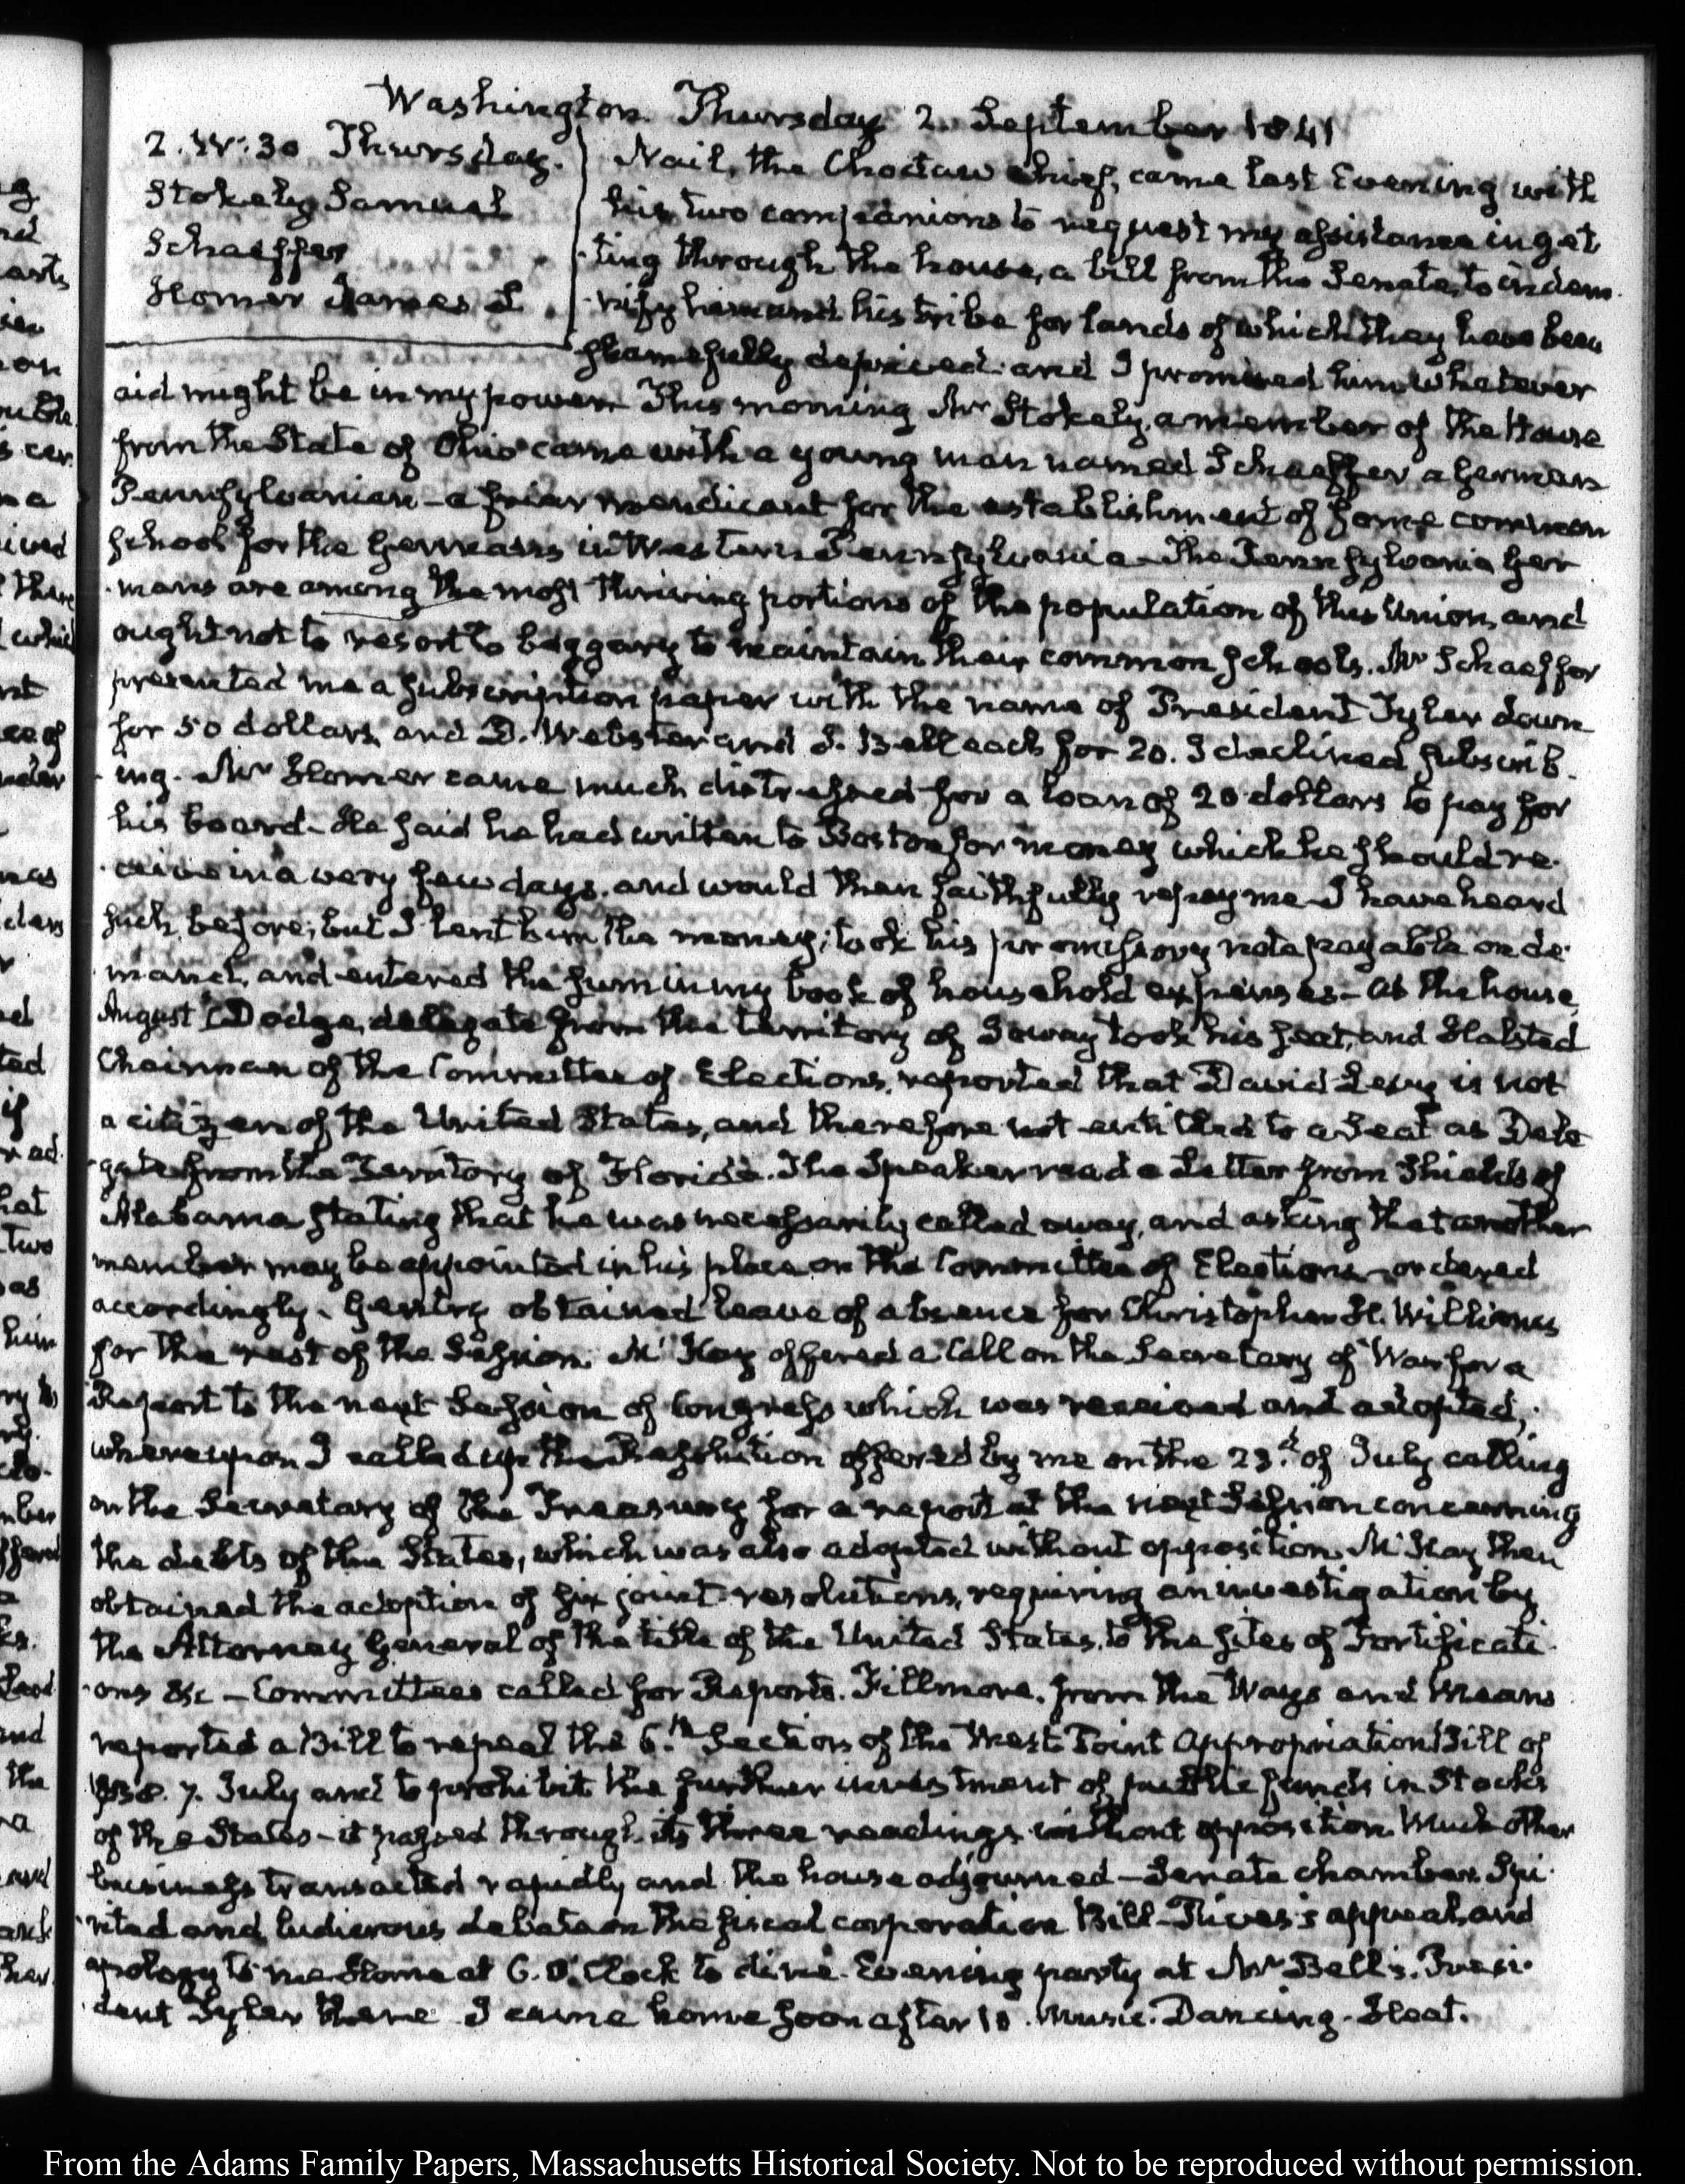 Washington. Thursday 2. September 1841
2. IV:30 Thursday.
Stokely Samuel
Schaeffer
Homer James L
Nail, the Choctaw Chief, came last Evening with
his two companions to request my assistance in get
ting through the house, a bill from the Senate, to indem
nify him and his tribe for lands of which they have been
shamefully deprived: and I promised him whatever
aid might be in my power. This morning Mr Stokely, a member of the House
from the State of Ohio came with a young man named Schaeffer a German
Pennsylvanian – a friar mendicant for the establishment of some common
school for the Germans in Western Pennsylvania – The Pennsylvania Ger
mans are among the most thriving portions of the population of this Union, and
ought not to resort to beggary to maintain their common schools. Mr Schaeffer
presented me a subscription paper with the name of President Tyler down
for 50 dollars, and D. Webster and J. Bell each for 20. I declined subscrib
ing. Mr Homer came much distressed for a loan of 20 dollars to pay for
his board – He said he had written to Boston for money which he should re
ceive in a very few days, and would then faithfully repay me – I have heard
such before; but I lent him the money; took his promissory note payable on de
mand, and entered the sum in my book of household expenses – At the house,
August C Dodge, delegate from the territory of Ioway took his seat, and Halsted
Chairman of the Committee of Elections, reported that David Levy is not
a citizen of the United States, and therefore not entitled to a Seat as Dele
gate from the Territory of Florida. The Speaker read a Letter from Shields of
Alabama stating that he was necessarily called away, and asking that another
member may be appointed in his place on the Committee of Elections – ordered
accordingly. Gentry obtained leave of absence for Christopher H. Williams
for the rest of the Session. McKay offered a Call on the Secretary of War for a
Report to the next Session of Congress which was received and adopted;
whereupon I called up the Resolution offered by me on the 23d of July calling
on the Secretary of the Treasury for a report at the next Session concerning
the debts of the States, which was also adopted without opposition. McKay then
obtained the adoption of six joint resolutions, requiring an investigation by
the Attorney General of the title of the United States, to the sites of Fortificati
ons &c – Committees called for Reports. Fillmore, from the Ways and Means
reported a Bill to repeal the 6.th Section of the West Point Appropriation Bill of
1838. 7. July and to prohibit the further investment of public funds in Stocks
of the States – it passed through its three readings without opposition. Much other
business transacted rapidly and the house adjourned – Senate chamber. Spi
rited and ludicrous debate on the fiscal corporation Bill – Rives's appeal, and
apology to me Home at 6. O'Clock to dine. Evening party at Mr Bell's. Presi
dent Tyler there I came home soon after 10. Music. Dancing. Heat.
From the Adams Family Papers, Massachusetts Historical Society. Not to be reproduced without permission.